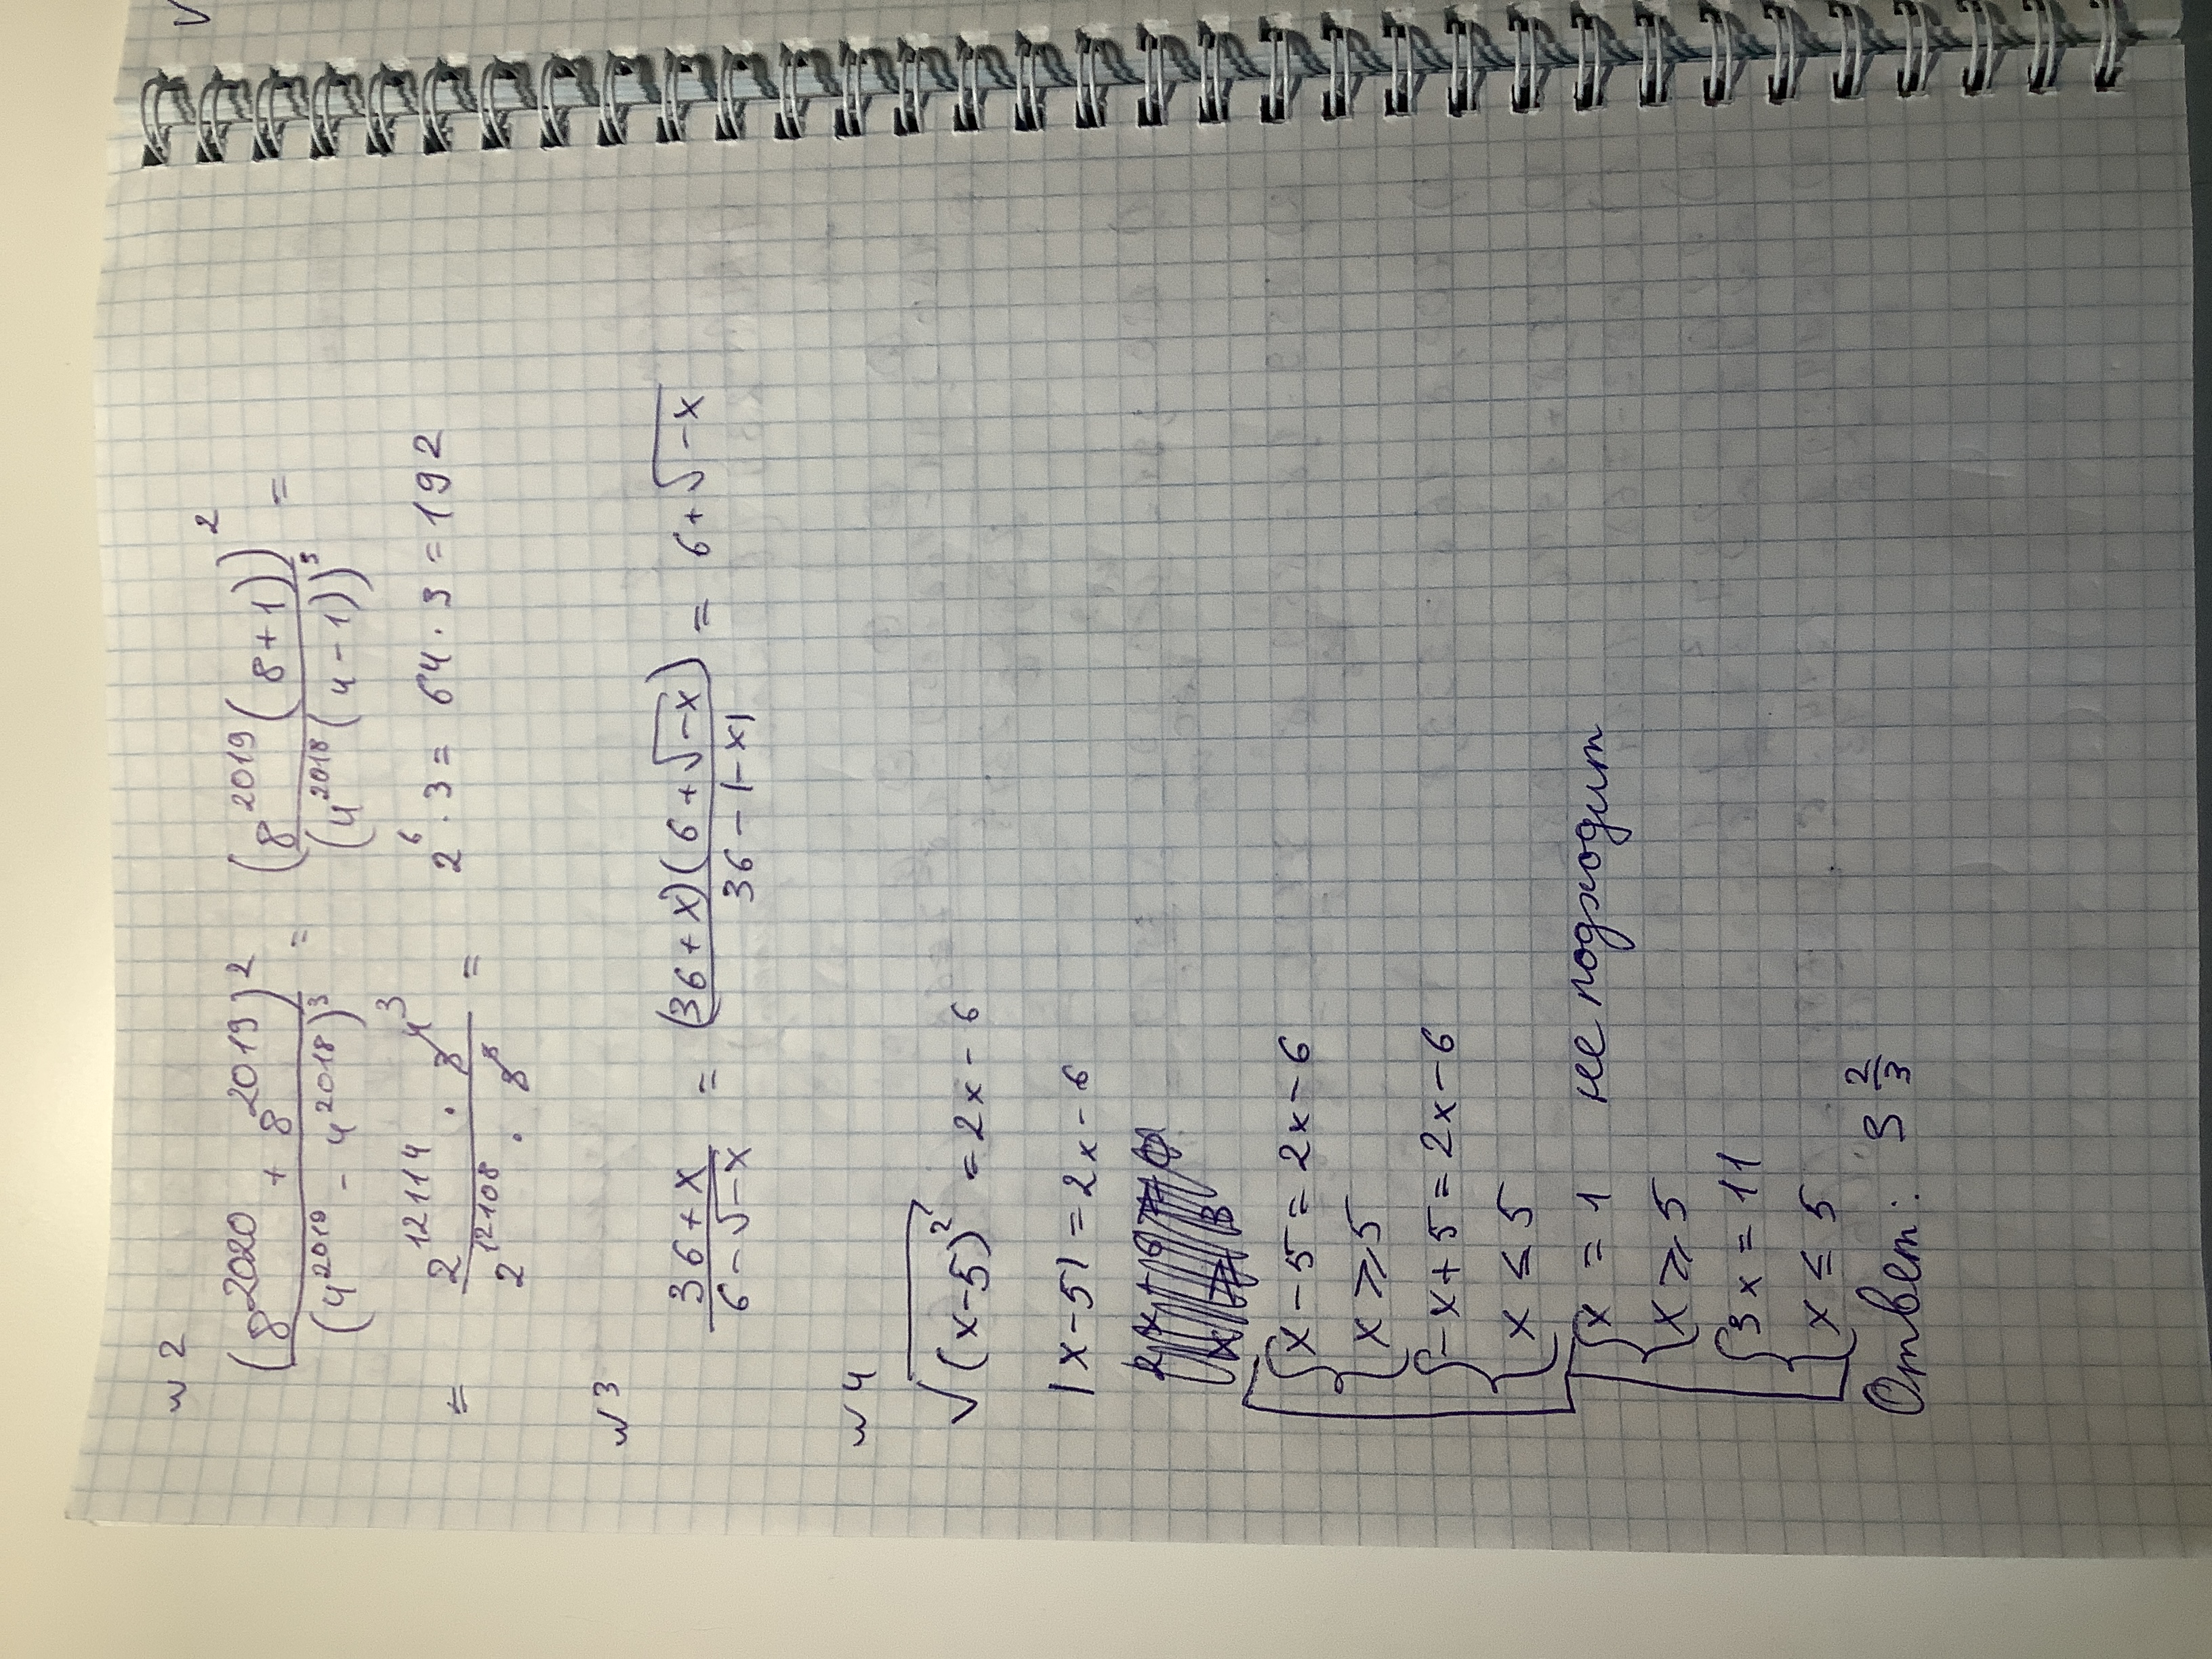 № 2
(8^2020 + 8^2019)^2 / (4^2019 - 4^2018)^3 = (8^2019 (8+1))^2 / (4^2018 (4-1))^3 =
= 2^12114 · 3^4 / 2^12108 · 3^3 = 2^6 · 3 = 64 · 3 = 192
№ 3
36+x / 6-√-x = (36+x)(6+√-x) / 36-|-x| = 6+√-x
№ 4
√(x-5)^2 = 2x-6
|x-5| = 2x-6
x-5 = 2x-6
x ⩾ 5
-x+5 = 2x-6
x ≤ 5
x = 1 не подходит
x ⩾ 5
3x = 11
x ≤ 5
Ответ: 3 2/3